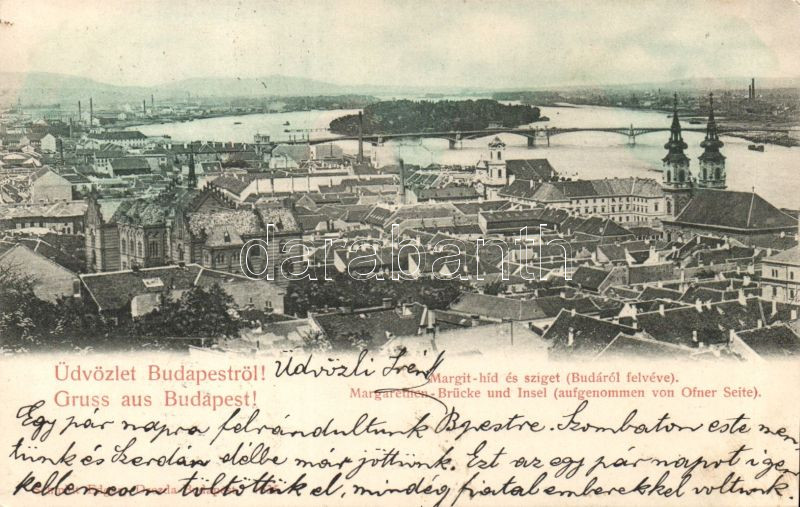 darabanth
Üdvözlet Budapestről! Üdvözli Irén Margit-híd és sziget (Budáról felvéve).
Gruss aus Budapest! Margarethen-Brücke und Insel (aufgenommen von Ofner Seite).
Egy pár napra felrándultunk Bpestre. Szombaton este men-
tünk és Szerdán délbe már jöttünk. Ezt az egy pár napot igen
kellemesen töltöttük el, mindég fiatal emberekkel voltunk.